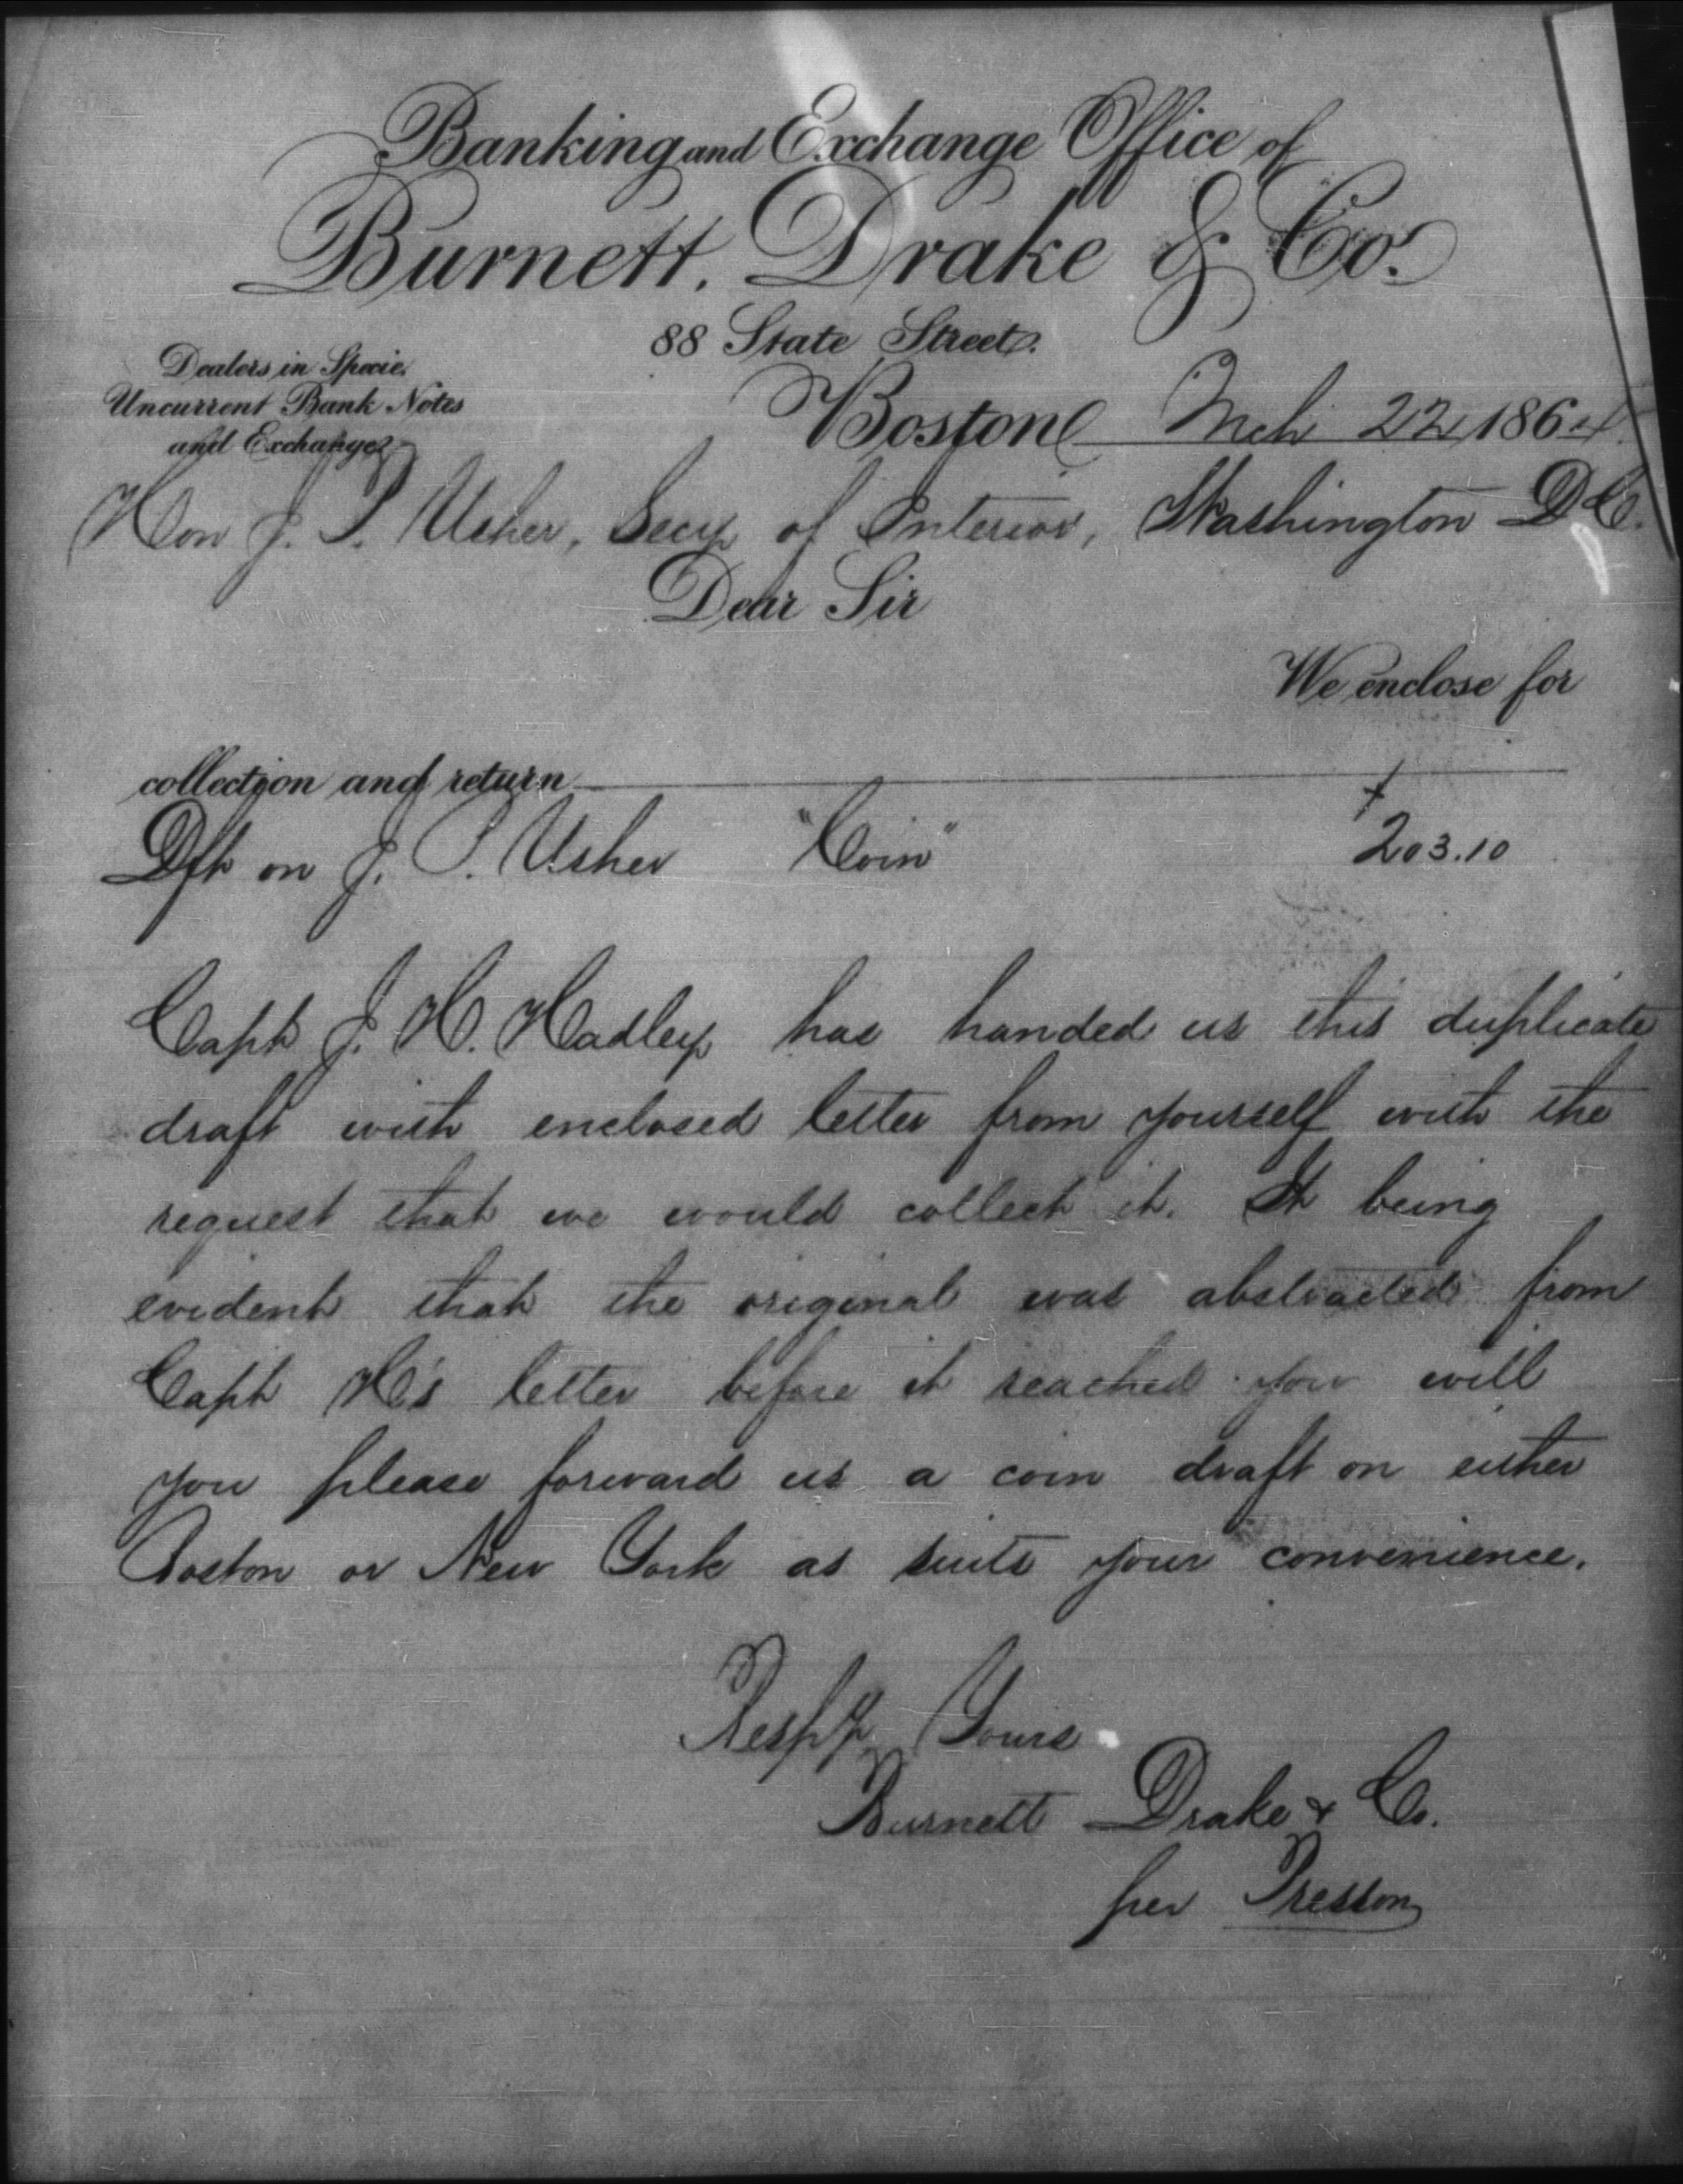 Banking and Exchange Office of
Burnett, Drake & Co.
88 State Street.
Dealers in Specie,
Uncurrent Bank Notes
and Exchange.
Boston Mch 22 1864.
Hon J. P. Usher, Secy of Interior, Washington DC.
Dear Sir
We enclose for
collection and return
Dft on J. P. Usher "Coin" 203.10
Capt J. H. Hadley has handed us this duplicate
draft with enclosed letter from yourself with the
request that we would collect it. It being
evident that the original was abstracted from
Capt H's letter before it reached you will
you please forward us a coin draft on either
Boston or New York as suits your convenience.
Respy Yours
Burnett Drake & Co.
per Preston